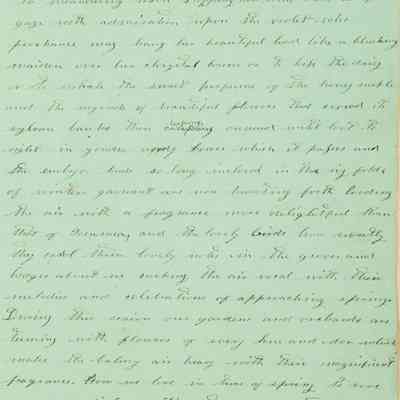 gaze with admiration upon the violet who
perchance may hang her beautiful head like a blushing
maiden over her chrystal brow or to kiss the dew
or to inhale the sweet perfume of the honey suckle
and the myriads of beautiful flowers that crowd its
sylvan banks then onward until lost to
sight in yonder woody grove which it passes and
the embryo buds so long inclosed in the icy folds
of winter garment are now bursting forth loading
the air with a fragrance more delightful than
that of and the lovely birds how sweetly
they their lovely notes in the groves and
hedges about us making the air vocal with their
melodies and celebrations of approaching spring.
During this season our gardens and orchards are
turning with flowers of every hue and odor which
makes the balmy air heavy with their magnificent
fragrance. How we love in time of spring to rove